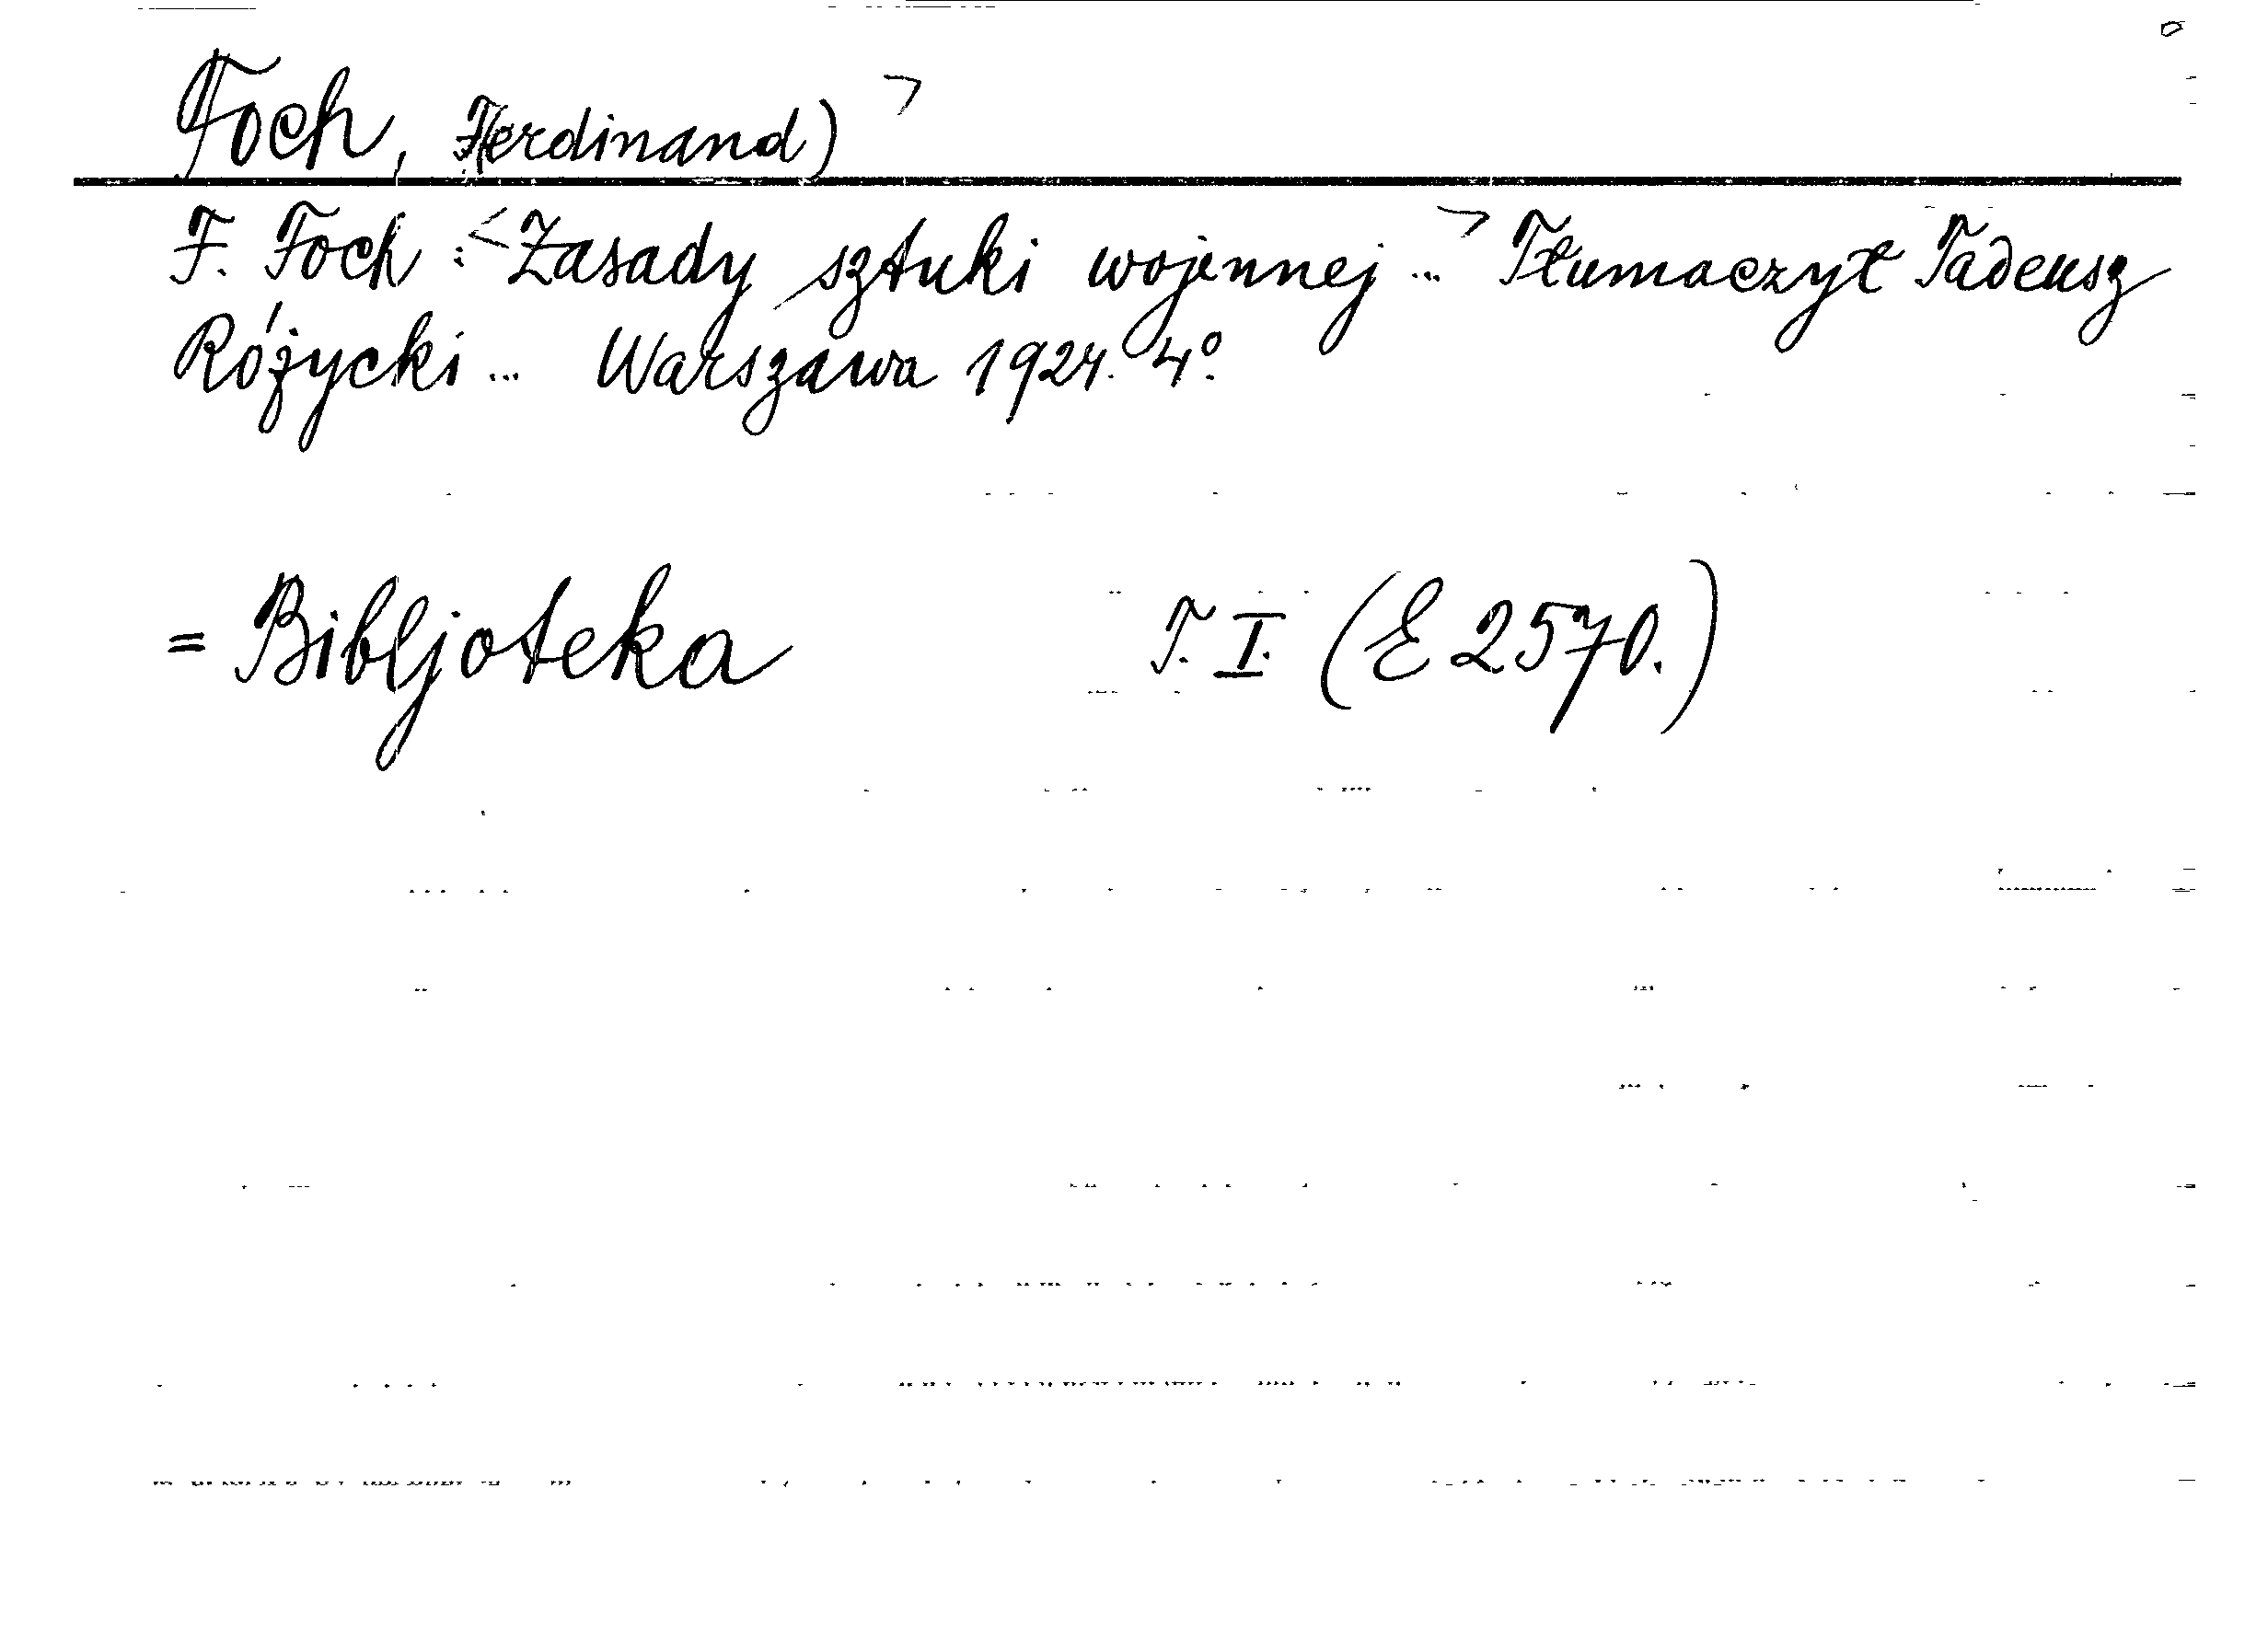 Foch, Ferdinand) >
F. Foch : <Zasady sztuki wojennej ... > Tłumaczył Tadeusz
Różycki ... Warszawa 1924. 4º.
= Bibljoteka T. I. (E 2570.)